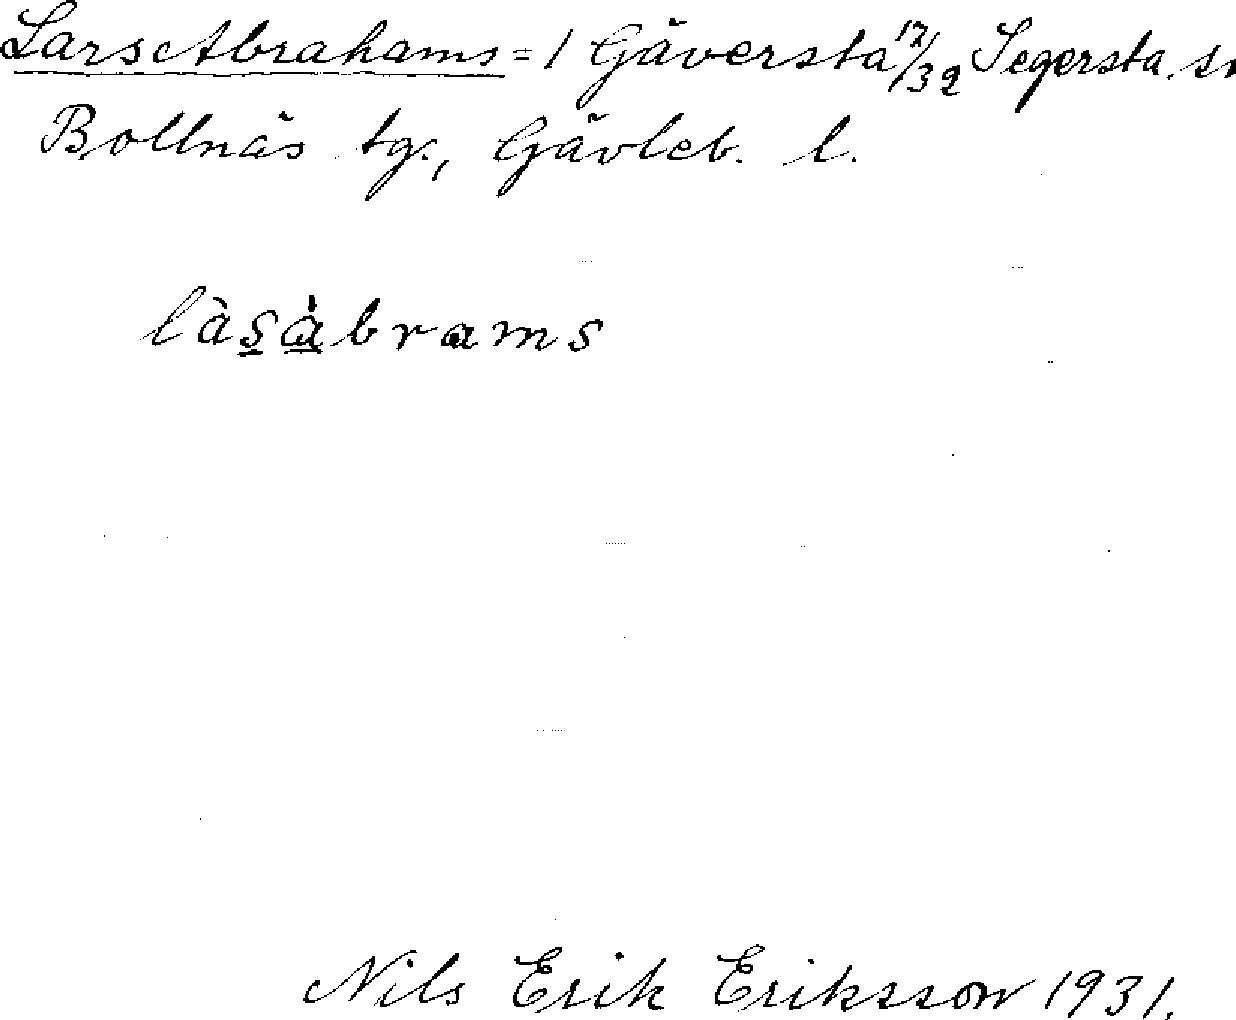 Lars Abrahams = / Gäversta 17/32 Segersta sn
Bollnäs tg., Gävleb. l.
làsàbrams
Nils Erik Eriksson 1931.